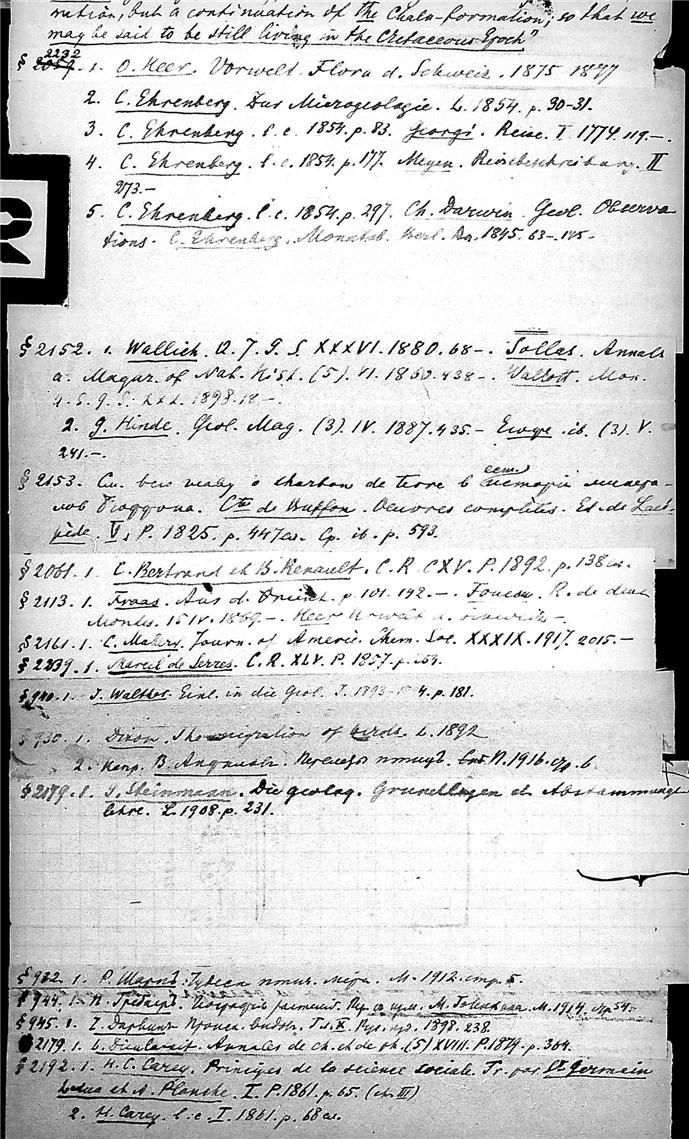 mation, but a continuation of the Chalk-formation; so that we
may be said to be still living in the Cretaceous Epoch"
§ 2232 2059. 1. O. Heer. Vorwelt. Flora d. Schweiz. 1875 1877
2. C. Ehrenberg. Zur Microgeologie. L. 1854. p. 30-31.
3. C. Ehrenberg. l. c. 1854. p. 83. Georgi. Reise. I. 1774. 119.—
4. C. Ehrenberg. l. c. 1854. p. 177. Meyen. Reisebeschreibung. II
273.—
5. C. Ehrenberg. l. c. 1854. p. 297. Ch. Darwin. Geol. Observa
tions. C. Ehrenberg. Monatsb. Berl. Ak. 1845. 63-
§ 2152. 1. Wallich. Q. J. G. S. XXXVI. 1880. 68—. Sollas. Annals
a. Magaz. of Nat. Hist. (5). VI. 1880. 438—. Mon.
1898. 18—.
2. G. Hinde. Geol. Mag. (3). IV. 1887. 435—. ib. (3). V.
241.—.
§ 2153. См. charbon de terre в
Бюффона. Cte de Buffon. Oeuvres complètes. Ed. de Lacé-
pède. V, P. 1825. p. 447 Ср. ib. p. 593.
§ 2061. 1. C. Bertrand et B. Renault. C. R. CXV. P. 1892. p. 138
§ 2113. 1. Fraas. Aus d. Orient. p. 101. 192.—. R. de deux
Mondes. 15 IV. 1869.—. Heer Urwelt d. Schweiz—.
§ 2161. 1. Journ. of Americ. Chem. Soc. XXXIX. 1917. 2015.—
§ 2239. 1. Marcel de Serres. C. R. XLV. P. 1857. p.
§ 940. 1. J. Walther. Einl. in die Geol. J. 1893-1894. p. 181.
§ 930. 1. Dixon. The migration of birds. L. 1892
2. B. птиц. П. 1916. стр. 6.
§ 2179. 1. G. Steinmann. Die geolog. Grundlagen d. Abstammungs
lehre. L. 1908. p. 231.
§ 932. 1. Р. Шарп. Чудеса птич. мира. М. 1912. стр. 5.
§ 944. 1. П. М. 1914. стр. 54.
§ 945. 1. Дарвин 1898. 238.
§ 2179. 1. L. Dieulafait. Annales de ch. et de ph. (5) XVIII. P. 1879. p. 364.
§ 2192. 1. H. C. Carey. Principes de la science sociale. Tr. par St Germain
Leduc et A. Planche. I. P. 1861. p. 65. (ch. III)
2. H. Carey. l. c. I. 1861. p. 68